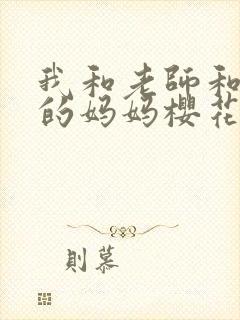 我和老師和
的妈妈樱花
則慕